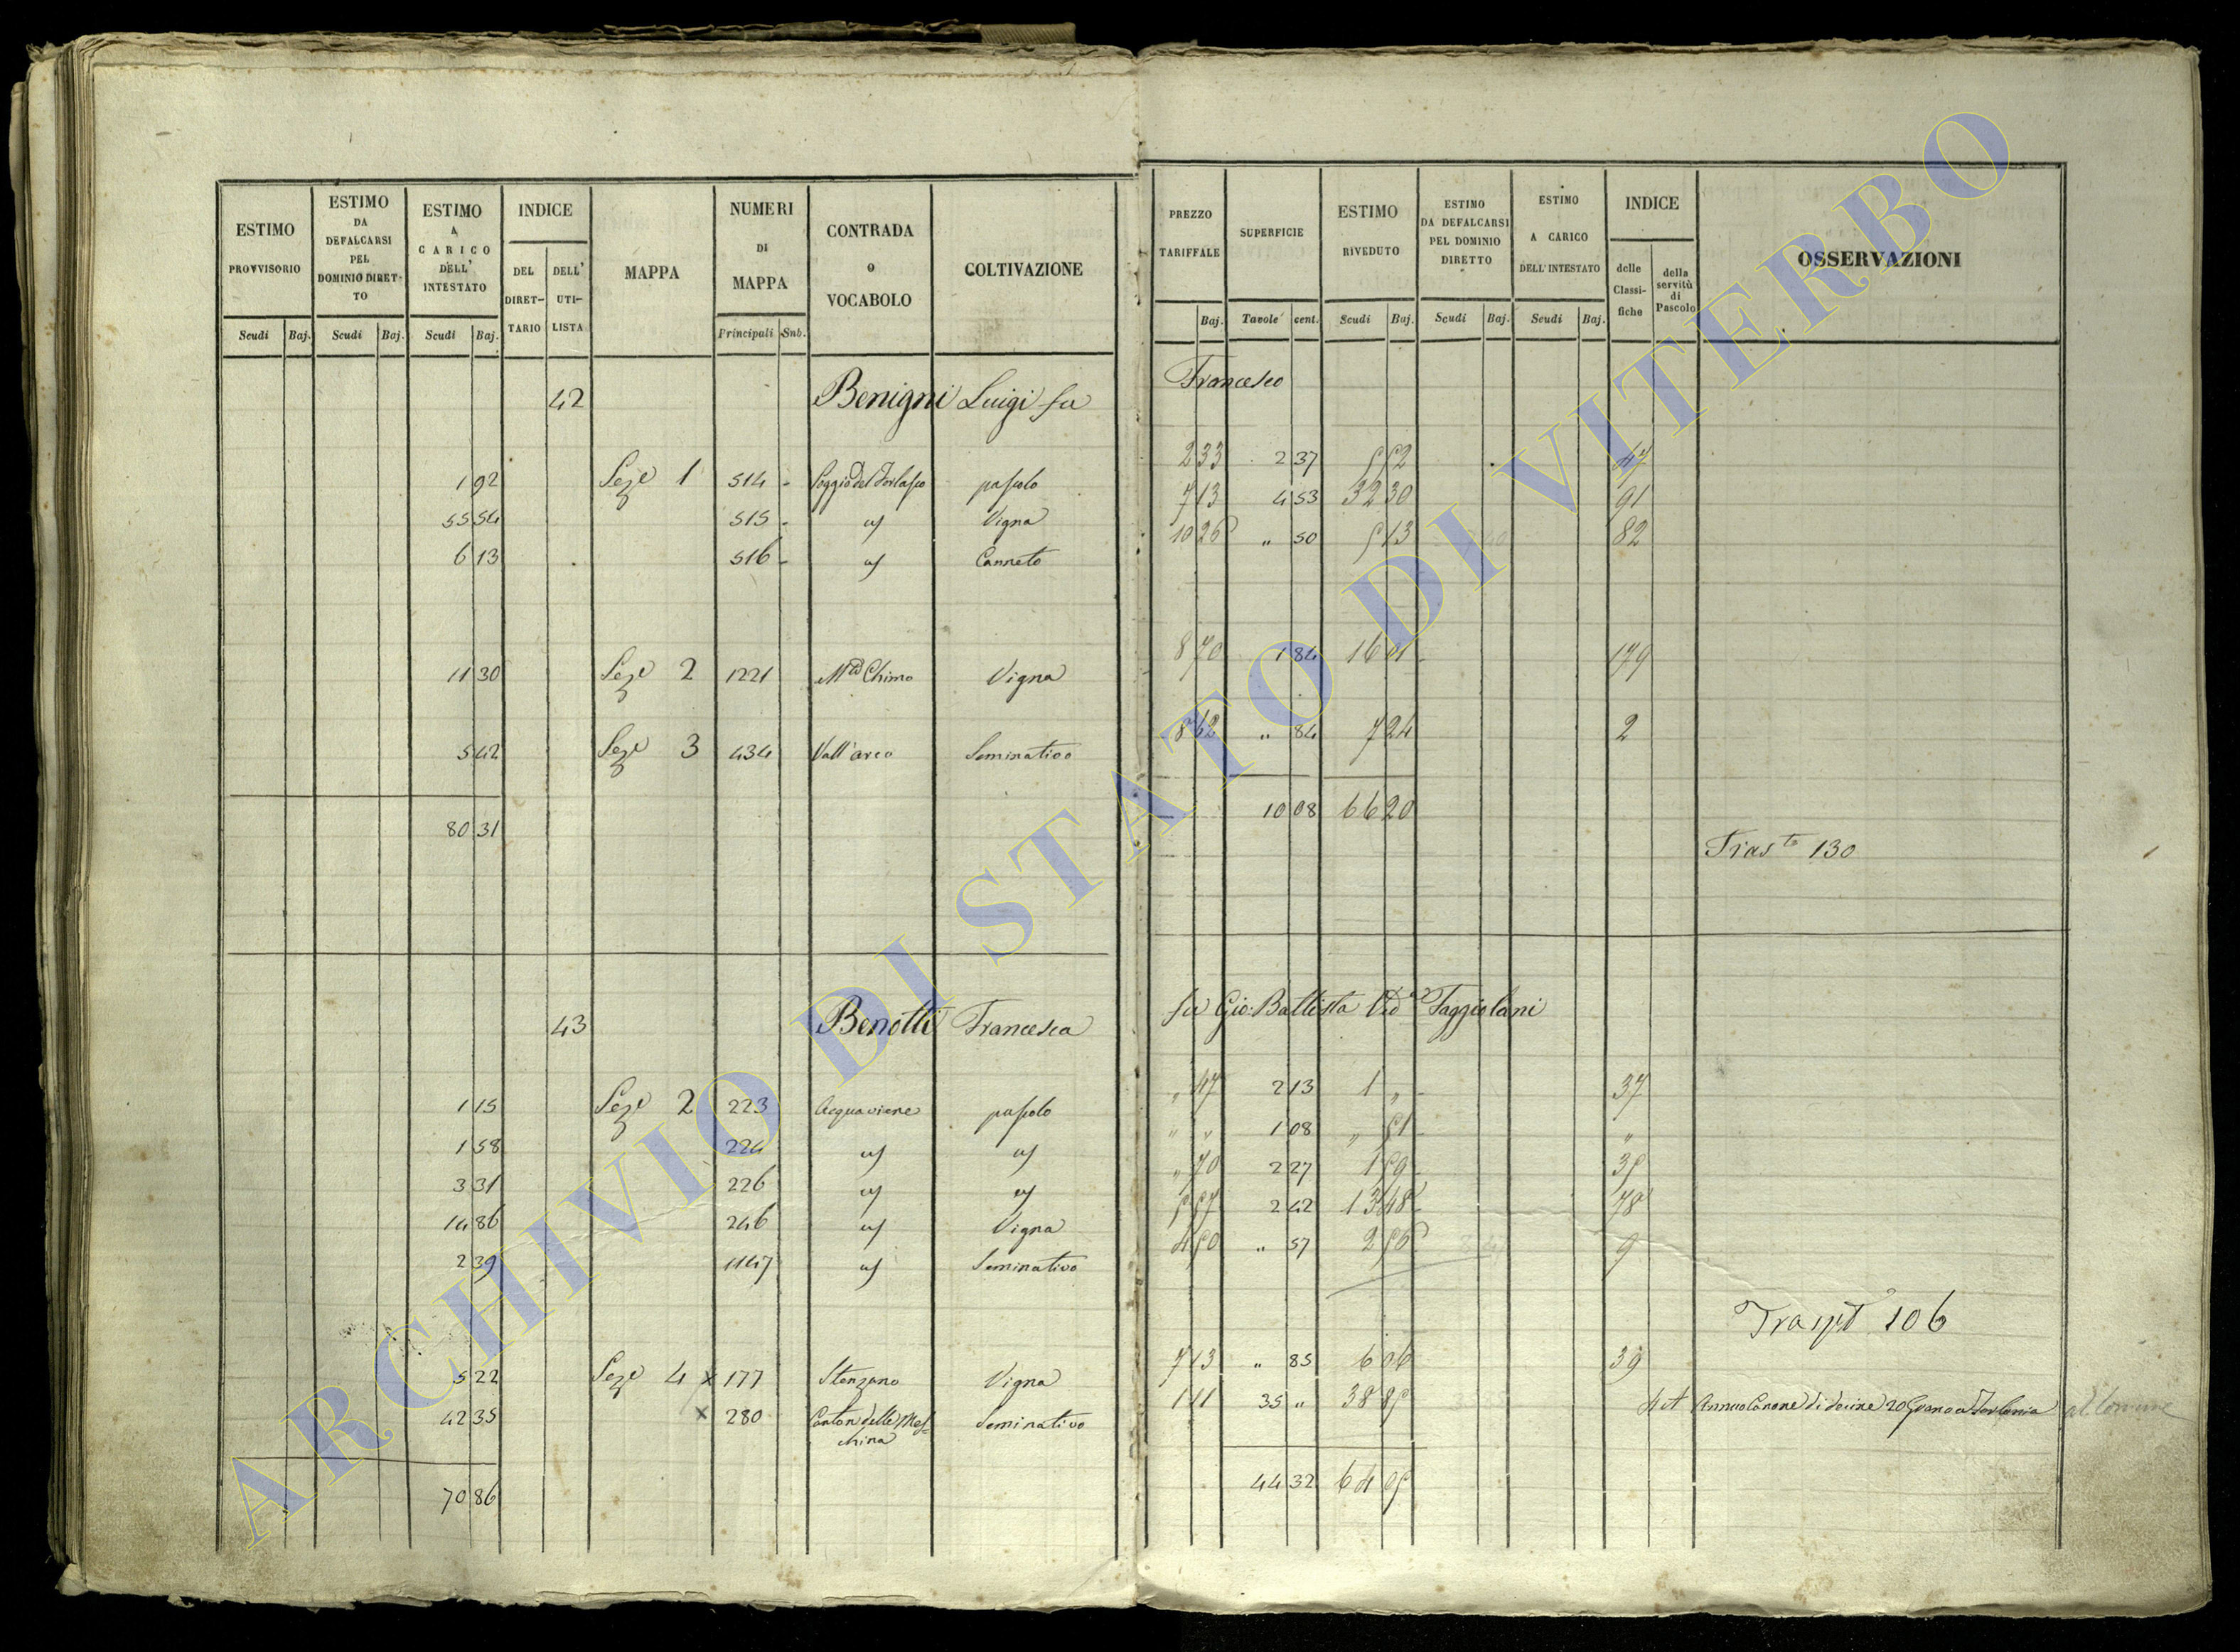 ESTIMO PROVVISORIO
ESTIMO DA DEFALCARSI PEL DOMINIO DIRET- TO
ESTIMO A CARICO DELL' INTESTATO
INDICE
DEL DIRET- TARIO
DELL' UTI- LISTA
MAPPA
NUMERI DI MAPPA
CONTRADA O VOCABOLO
COLTIVAZIONE
PREZZO TARIFFALE
SUPERFICIE
ESTIMO RIVEDUTO
ESTIMO DA DEFALCARSI PEL DOMINIO DIRETTO
ESTIMO A CARICO DELL' INTESTATO
INDICE
delle Classi- fiche
della servitù di Pascolo
OSSERVAZIONI
Scudi Baj. Scudi Baj. Scudi Baj. Principali Sub. Baj. Tavole cent. Scudi Baj. Scudi Baj. Scudi Baj.
42 Benigni Luigi fu Francesco
1 92 Seze 1 514 pascolo 2 33 2 37 5 52
55 54 515 Vigna 7 13 4 53 32 30 91
6 13 516 Canneto 10 26 " 50 5 13 82
11 30 Seze 2 1221 Chimo Vigna 8 70 1 84 16 01 179
5 42 Seze 3 434 Vall'arco Seminativo 8 62 " 84 7 24 2
80 31 10 08 66 20
Trasto 130
43 Benotti Francesca fu Gio: Battista Veda Faggiolani
1 15 Seze 2 223 Acquaviene pascolo " 47 2 13 1 " 37
1 58 224 " " 1 08 " 51 "
3 31 226 " 70 2 27 1 59 35
14 86 246 Vigna 5 57 2 42 13 48 78
2 39 1147 Seminativo 4 50 " 57 2 56 9
106
5 22 Seze 4 x 177 Stenzano Vigna 7 13 " 85 6 06 39
42 35 x 280 Canton delle Mes= china Seminativo 1 11 35 " 38 85 Annuo Canone di decine 20 Grano a Torlonia al Comune
70 86 44 32 64 05
ARCHIVIO DI STATO DI VITERBO